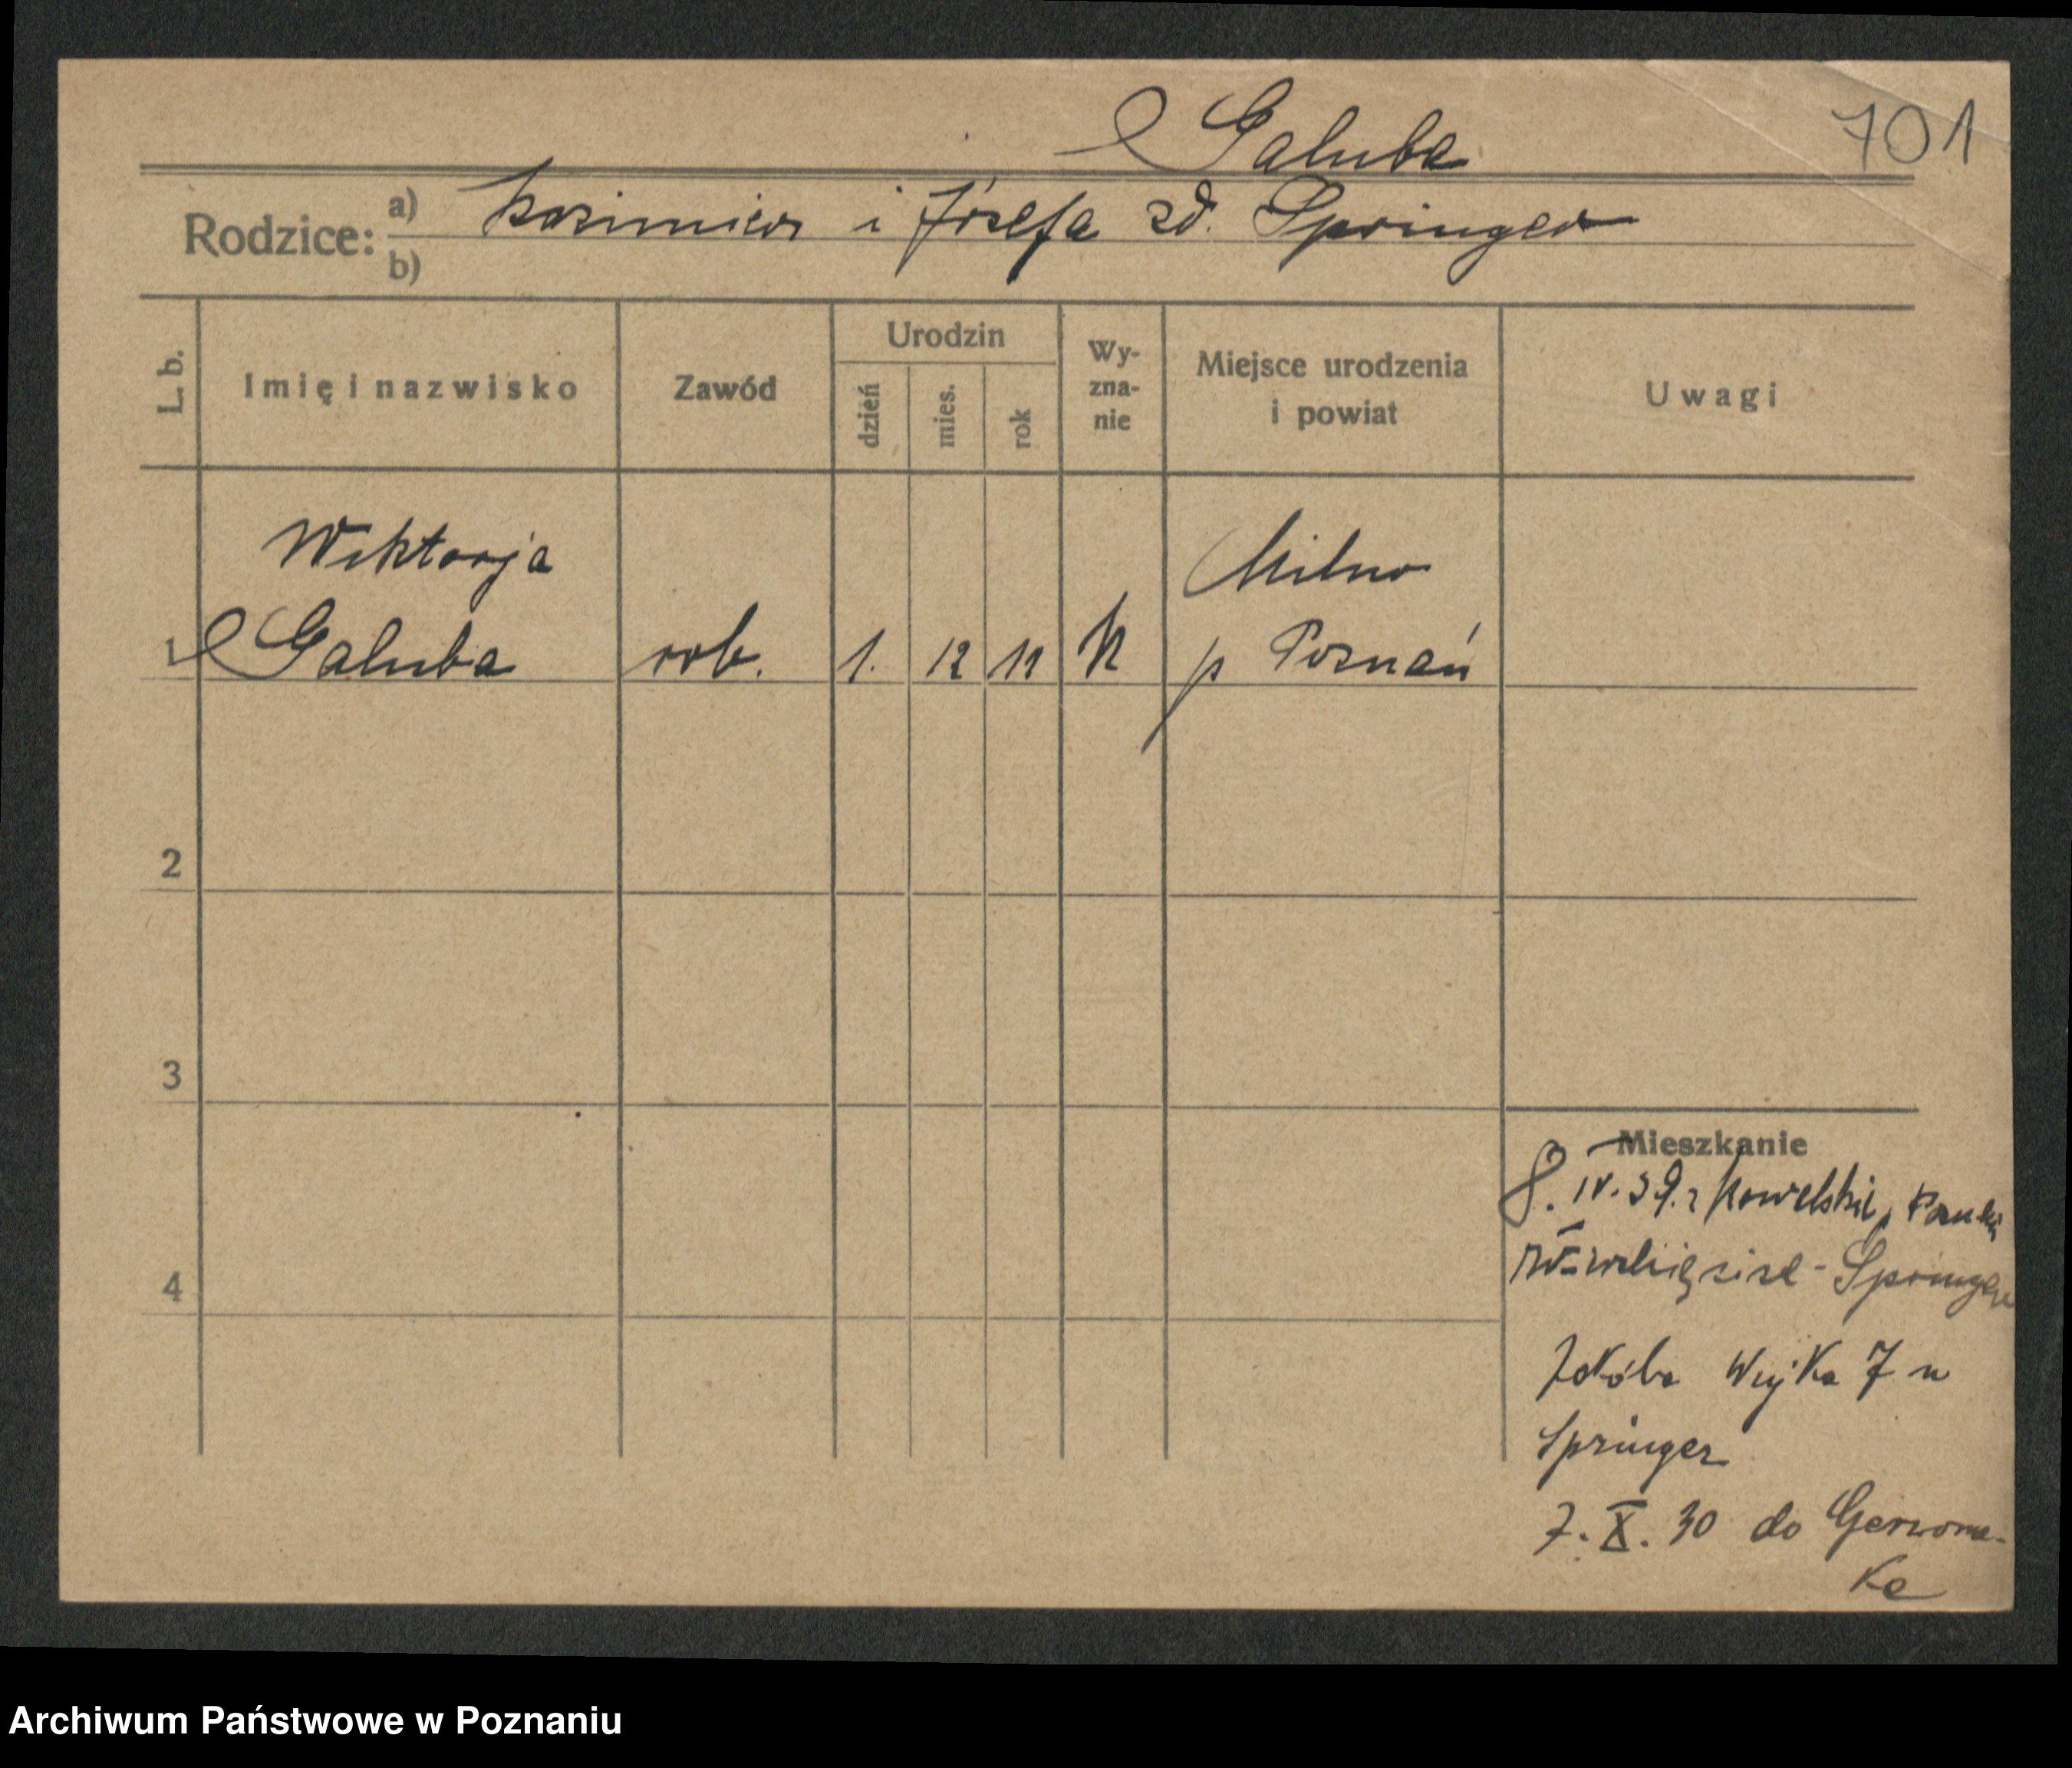 Galuba
701
Rodzice: a) Kazimierz i Józefa zd. Springer
b)
L. b.
Imię i nazwisko
Zawód
Urodzin
dzień
mies.
rok
Wy-
zna-
nie
Miejsce urodzenia
i powiat
Uwagi
Wiktorja
Milno
1 Galuba
rob.
1.
12
11
K
p Poznań
2
3
4
Mieszkanie
8. IV. 39. z
Springer
Jakóba Wujka 7 u
Springer
7. X. 30 do Gerwona-
ka
Archiwum Państwowe w Poznaniu